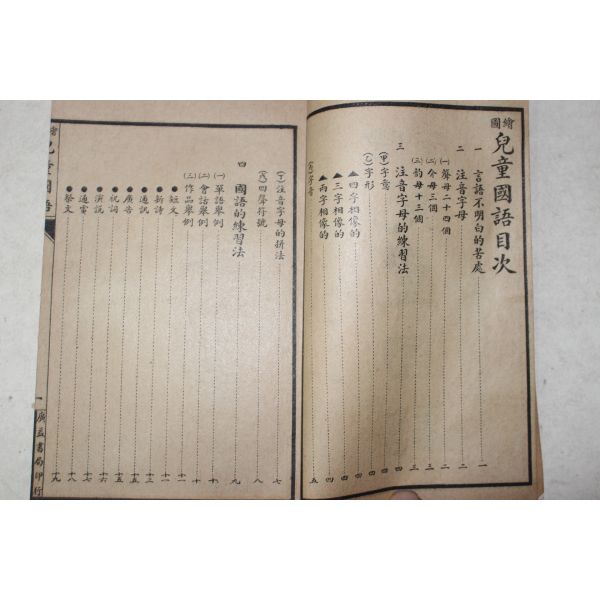 繪圖兒童國語目次
一 言語不明白的苦處 一
二 注音字母 二
(一)聲母二十四個 二
(二)介母三個 三
(三)韵母十三個 三
三 注音字母的練習法 四
(甲)字義 四
(乙)字形 四
▲四字相像的 四
▲三字相像的 四
▲兩字相像的 四
(丙)字音 五
(丁)注音字母的拼法 七
(戊)四聲符號 八
四 國語的練習法 九
(一)單語舉例 十
(二)會話舉例 十
(三)作品舉例 十一
●短文 十一
●新詩 十二
●通訊 十三
●廣告 十五
●祝詞 十五
●演說 十六
●通電 十七
●祭文 十八
十九
繪圖兒童國語
一
廣益書局印行